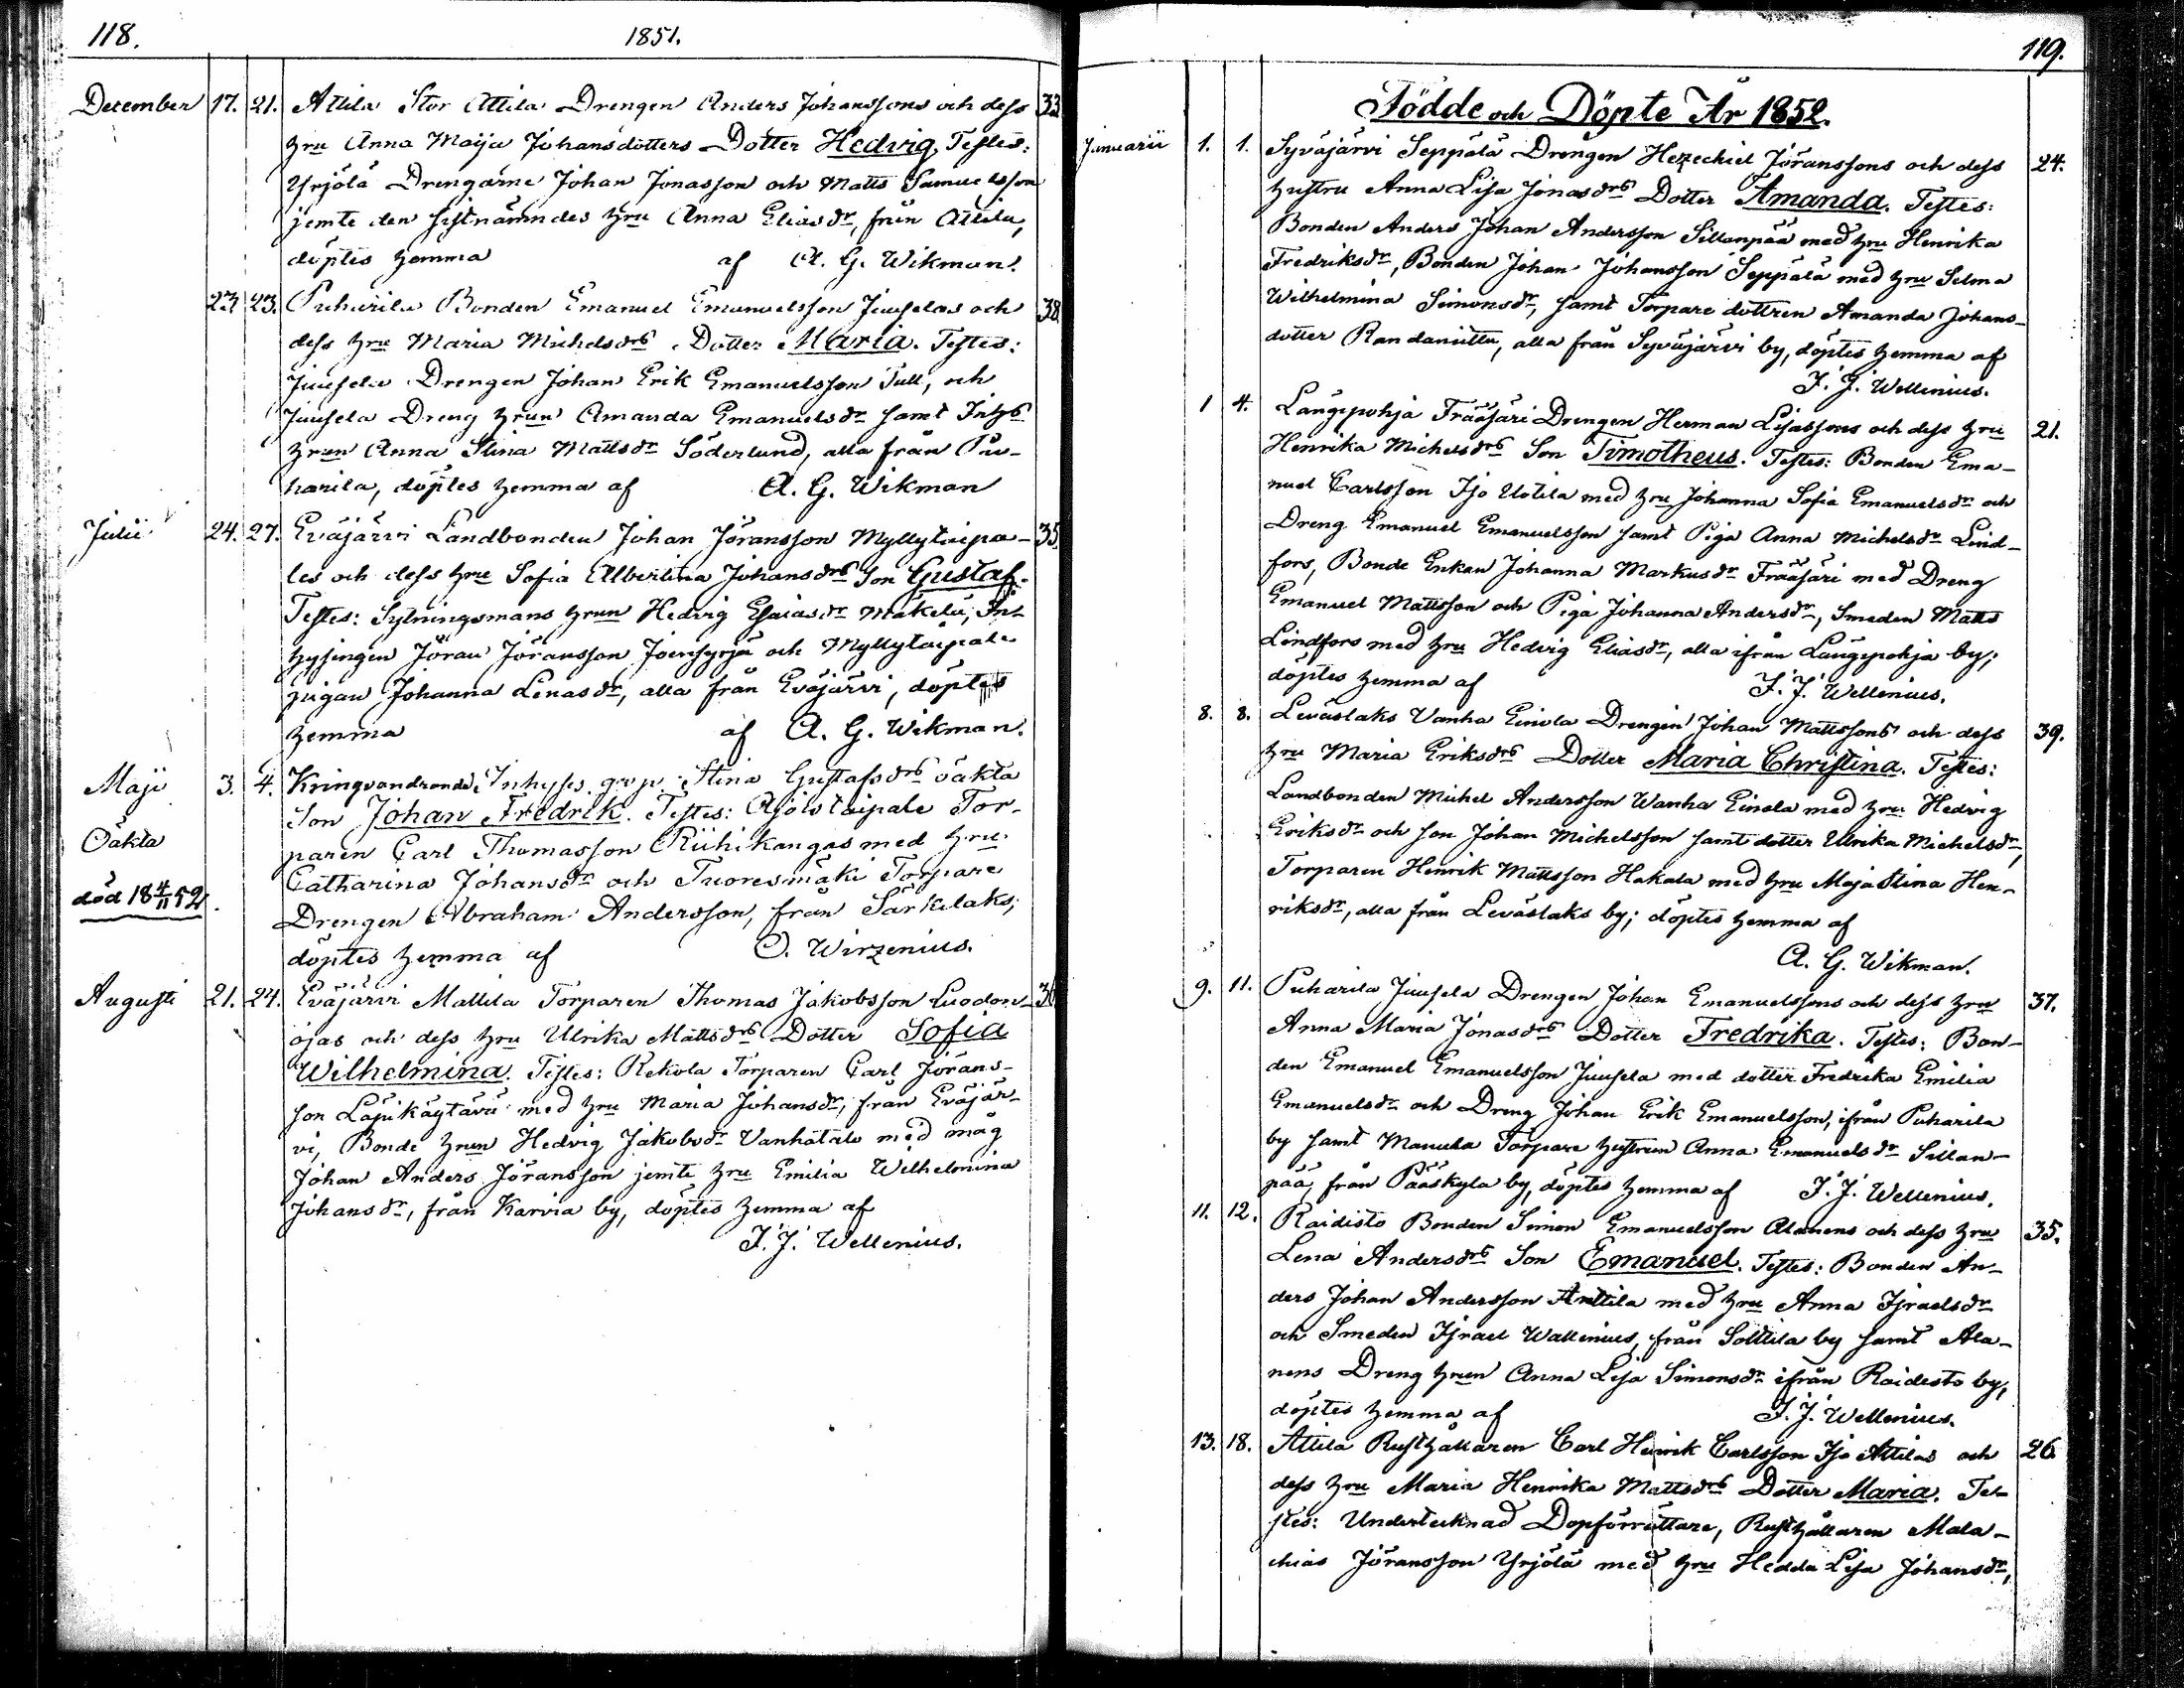 118. 1851.
December 17. 21. Attila Stor Attila Drengen Anders Johanssons och dess 33
Hru Anna Maija Johansdotters Dotter Hedvig. Testes:
Yrjölä Drengarne Johan Jonasson och Matts Samuelsson
jemte den sistnämndes Hru Anna Eliasdr, från Attila,
döptes hemma af A. G. Wikman.
23 23. Puharila Bonden Emanuel Emanuelsson Juuselas och 38
dess Hru Maria Michelsdrs Dotter Maria. Testes:
Juusela Drengen Johan Erik Emanuelsson Pull, och
Juusela Dreng Hrun Amanda Emanuelsdr samt Inhs
Hrun Anna Stina Mattsdr Söderlund, alla från Pu-
harila, döptes hemma af A. G. Wikman
Julii 24. 27. Eväjärvi Landbonden Johan Jöransson Myllytaipa- 35
les och dess Hru Sofia Albertina Johansdrs Son Gustaf.
Testes: Sytningsmans Hrun Hedvig Esaiasdr Mäkelä, In-
hysingen Jöran Jöransson Joensyrjä och Myllytaipale
pigan Johanna Lenasdr, alla från Eväjärvi, döptes
hemma af A. G. Wikman.
Maji 3. 4. Kringvandrande Inhyses qvp. Stina Gustafsdrs oäkta
Oäkta Son Johan Fredrik. Testes: Ajostaipale Tor-
paren Carl Thomasson Riihikangas med Hru
Catharina Johansdr och Tuoresmäki Torpare
död 18 4/11 52. Drengen Abraham Andersson, från Särkilaks;
döptes hemma af O. Wirzenius.
Augusti 21. 24. Eväjärvi Mattila Torparen Thomas Jakobsson Luodon- 36
ojas och dess Hru Ulrika Mattsdrs Dotter Sofia
Wilhelmina. Testes: Rekola Torparen Carl Jörans-
son Läpikäytävä med Hru Maria Johansdr, från Eväjär-
vi, Bonde Hrun Hedvig Jakobsdr Vanhatalo med måg
Johan Anders Jöransson jemte Hru Emilia Wilhelmina
Johansdr, från Karvia by, döptes hemma af
I. J. Wellenius.
119.
Födde och Döpte År 1852.
Januarii 1. 1. Syväjärvi Seppälä Drengen Hezechiel Jöranssons och dess 24.
Hustru Anna Lisa Jonasdrs Dotter Amanda. Testes:
Bonden Anders Johan Andersson Sillanpää med Hru Henrika
Fredriksdr, Bonden Johan Johansson Seppälä med Hru Selma
Wilhelmina Simonsdr, samt Torpare dottren Amanda Johans-
dotter Randaniittu, alla från Syväjärvi by, döptes hemma af
I. J. Wellenius.
1 4. Längepohja Frääsäri Drengen Herman Lisassons och dess Hru 21.
Henrika Michelsdrs Son Timotheus. Testes: Bonden Ema-
nuel Carlsson Iso Uotila med Hru Johanna Sofia Emanuelsdr och
Dreng Emanuel Emanuelsson samt Piga Anna Michelsdr Lind-
fors, Bonde Enkan Johanna Markusdr Frääsäri med Dreng
Emanuel Mattsson och Piga Johanna Andersdr, Smeden Matts
Lindfors med Hru Hedvig Eliasdr, alla ifrån Längepohja by;
döptes hemma af I. J. Wellenius.
8. 8. Leväslaks Vanha Einola Drengen Johan Mattssons och dess 39.
Hru Maria Eriksdrs Dotter Maria Christina. Testes:
Landbonden Michel Andersson Wanha Einola med Hru Hedvig
Eriksdr och son Johan Michelsson samt dotter Ulrika Michelsdr,
Torparen Henrik Mattsson Hakala med Hru Maja Stina Hen-
riksdr, alla från Leväslaks by; döptes hemma af
A. G. Wikman.
9. 11. Puharila Juusela Drengen Johan Emanuelssons och dess Hru 37.
Anna Maria Jonasdrs Dotter Fredrika. Testes: Bon-
den Emanuel Emanuelsson Juusela med dotter Fredrika Emilia
Emanuelsdr och Dreng Johan Erik Emanuelsson, ifrån Puharila
by samt Mauula Torpare Hustrun Anna Emanuelsdr Sillan-
pää, från Pääskylä by, döptes hemma af I. J. Wellenius.
11. 12. Raidisto Bonden Simon Emanuelsson Alanens och dess Hru 35.
Lena Andersdrs Son Emanuel. Testes: Bonden An-
ders Johan Andersson Anttila med Hru Anna Israelsdr
och Smeden Israel Wallenius, från Solttila by samt Ala-
nens Dreng Hrun Anna Lisa Simonsdr ifrån Raidisto by,
döptes hemma af I. J. Wellenius.
13. 18. Attila Rusthållaren Carl Henrik Carlsson Iso Attilas och 26
dess Hru Maria Henrika Mattsdrs Dotter Maria. Tes-
stes: Undertecknad Dopförrättare, Rusthållaren Mala-
chias Jöransson Yrjölä med Hru Hedda Lisa Johansdr,